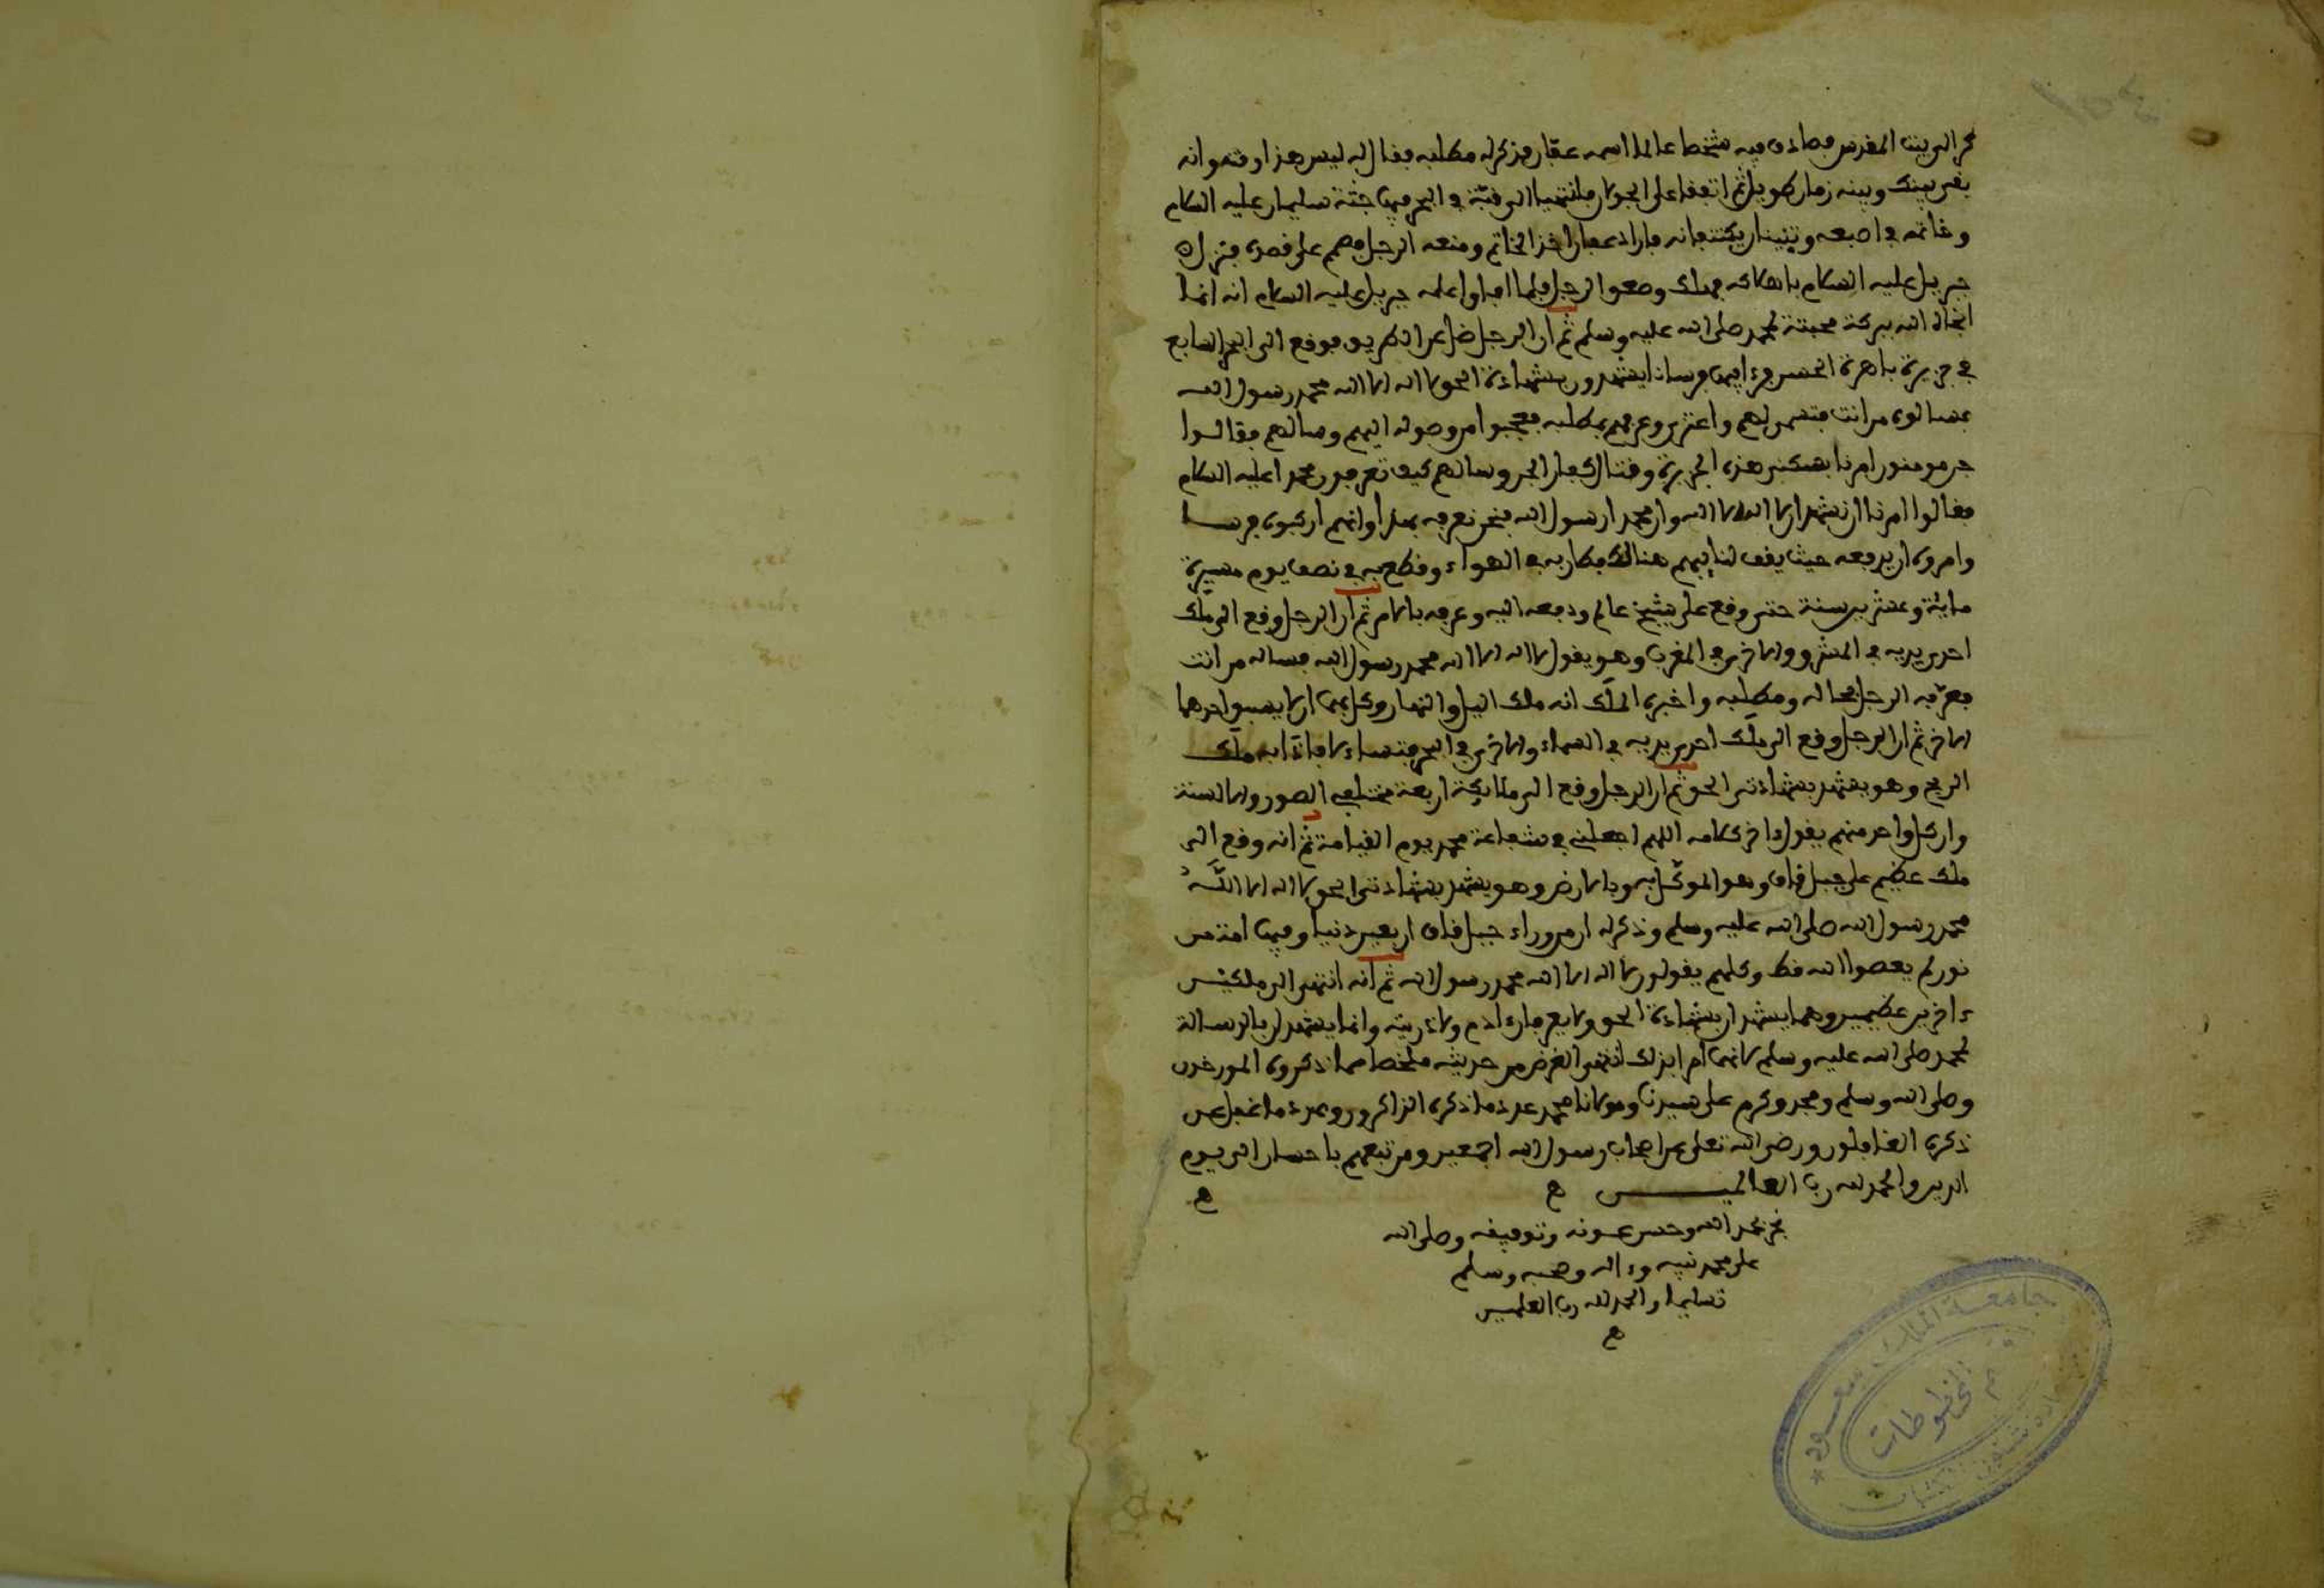 البيت المقدس فصادف فيه شخصا عالما اسمه عقان فذكر له مطلبه فقال له ليس هذا وقته وانه
بقي بينك وبينه زمان طويل ثم اتفقا على الجولان فانتهيا الى قبة في البحر فيها جثة سليمان عليه السلام
وخاتمه في اصبعه وتنينان يكتنفانه فاراد عفان اخذ الخاتم ومنعه الرجل فصمم على قصده فنزل
جبريل عليه السلام فهلك وصعق الرجل فلما افاق اعلمه جبريل عليه السلام انه انما
انجاه الله ببركة محبته لمحمد صلى الله عليه وسلم ثم ان الرجل ضل عن الطريق فوقع الى البحر السابع
في جزيرة باهرة الحسن فرءا فيها فرسانا يشهدون بشهادة الحق لا اله الا الله محمد رسول الله
فسالوه من انت فتسمى لهم واعتذر وعرفهم بمطلبه فعجبوا من وصوله اليهم وسالهم فقالوا
جن مومنون امرنا بسكنى هذه الجزيرة وقتال كفار الجن وسالهم كيف تعرفون محمدا عليه السلام
فقالوا امرنا ان نشهد ان لا اله الا الله وان محمدا رسول الله فنحن نعرفه بهذا وانهم اركبوه فرسا
وامروه ان يدفعه حيث يقف لنايبهم هنالك فطار به في الهواء وقطع به في نصف يوم مسيرة
ماية وعشرين سنة حتى وقع على شيخ عالم ودفعه اليه وعرفه بالامر ثم ان الرجل وقع الى ملك
احدى يديه في المشرق والاخرى في المغرب وهو يقول لا اله الا الله محمد رسول الله فساله من انت
فعرفه الرجل بحاله ومطلبه واخبره الملك انه ملك اليل والنهار وكل بهما ان لا يسبق احدهما
الاخر ثم ان الرجل وقع الى ملك احدى يديه في السماء والاخرى في البحر فتساءلا فاذا به ملك
الريح وهو يشهد بشهادتي الحق ثم ان الرجل وقع الى ملايكة اربعة مختلفي الصور والالسنة
وان كل واحد منهم يقول ءاخر كلامه اللهم اجعلني في شفاعة محمد يوم القيامة ثم انه وقع الى
ملك عظيم على جبل قاف وهو الموكل به وبالارض وهو يشهد بشهادتي الحق لا اله الا الله
محمد رسول الله صلى الله عليه وسلم وذكر له ان من وراء جبل قاف اربعين دنيا وفيها امة من
نور لم يعصوا الله قط وكلهم يقولون لا اله الا الله محمد رسول الله ثم انه انتهى الى ملكين
ءاخرين عظيمين وهما يشهدان بشهادة الحق ولا يعرفان ءادم ولا ذريته وانما يشهدان بالرسالة
لمحمد صلى الله عليه وسلم لانهما امرا بذلك انتهى الغرض من حديثه ملخصا مما ذكروه المورخون
وصلى الله وسلم ومجد وكرم على سيدنا ومولانا محمد عدد ما ذكره الذاكرون وعدد ما غفل عن
ذكره الغافلون ورضي الله تعلى عن اصحاب رسول الله اجمعين ومن تبعهم باحسان الى يوم
الدين والحمد لله رب العالمين
نجز بحمد الله وحسن عونه وتوفيقه وصلى الله
على محمد نبيه وءاله وصحبه وسلم
تسليما والحمد لله رب العلمين
جامعة الملك سعود
قسم المخطوطات
عمادة شئون المكتبات